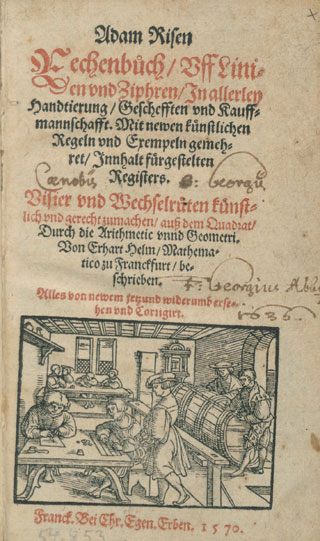 Adam Risen
Rechenbuͤch / Vff Lini-
en vnd Ziphren / In allerley
Handtierung / Geschefften vnd Kauff-
mannschafft. Mit newen kuͤnstlichen
Regeln vnd Exempeln gemeh-
ret / Innhalt fuͤrgestelten
Registers.
Cœnobij S. Georgij
Visier vnd Wechselruͤten kuͤnst-
lich vnd gerecht zumachen / auß dem Quadrat /
Durch die Arithmetic vnnd Geometri.
Von Erhart Helm / Mathema-
tico zu Franckfurt / be-
schrieben.
F. Georgius Abb
1636.
Alles von newem jetzund widerumb erse-
hen vnd Corrigirt.
Franck. Bei Chr. Egen. Erben. 1570.